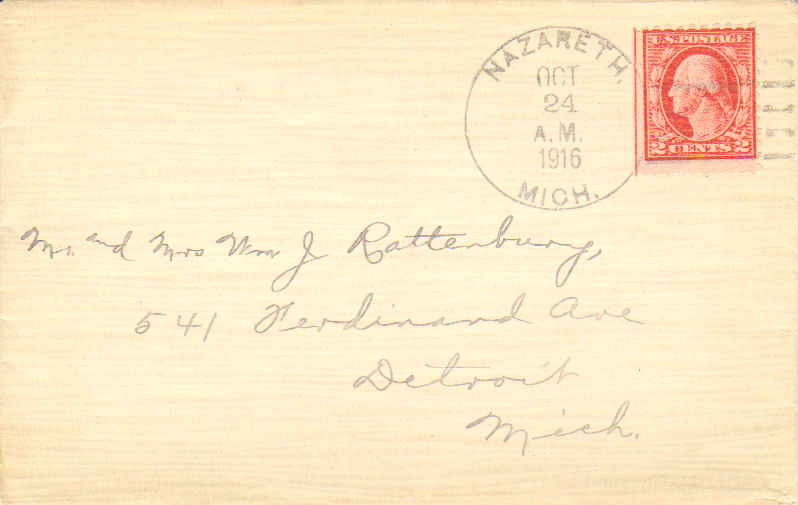 NAZARETH,
OCT
24
A.M.
1916
MICH.
U.S. POSTAGE
2 CENTS 2
Mr. and Mrs Wm J Rattenbury,
541 Ferdinand Ave
Detroit
Mich.